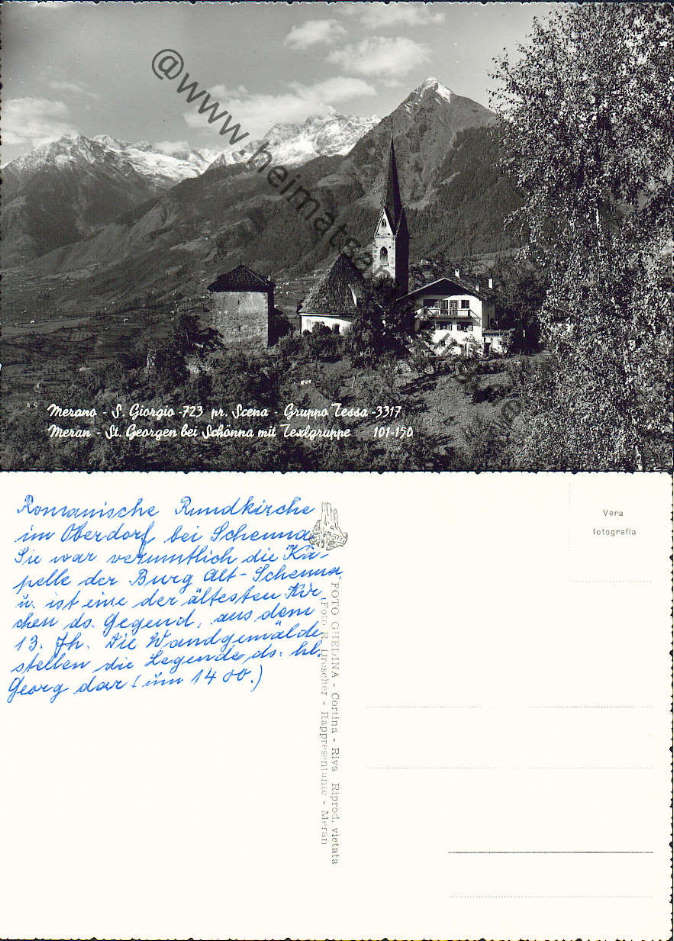 @www.heimatsa
Merano - S. Giorgio - 723 pr. Scena - Gruppo Tessa - 3317
Meran - St. Georgen bei Schönna mit Texlgruppe 101-150
Romanische Rundkirche
im Oberdorf bei Schenna
Sie war vermutlich die Ka-
pelle der Burg Alt-Schenna
u. ist eine der ältesten Kir
chen ds. Gegend, aus dem
13. Jh. Die Wandgemälde
stellen die Legende ds. hl.
Georg dar (um 1400.)
FOTO GHEDINA - Cortina - Riva Riprod. vietata
Foto R. - Rappresentante - Meran
Vera
fotografia